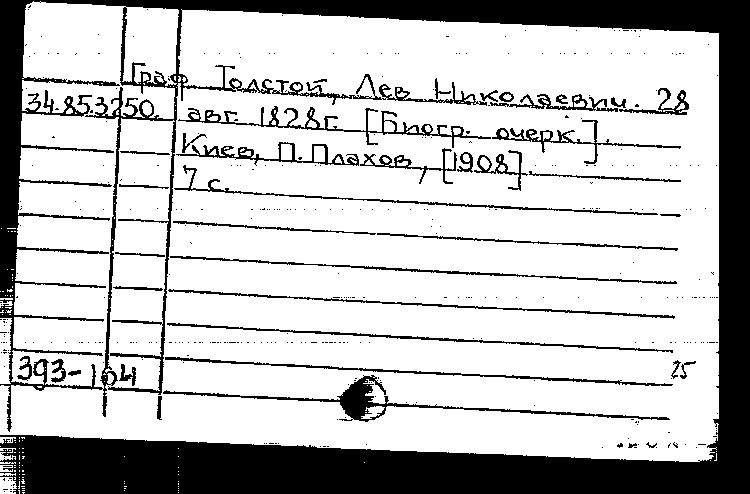 Граф Толстой, Лев Николаевич. 28
34.853250. авг. 1828г. [Биогр. очерк.].
Киев, П. Плахов, [1908].
7 с.
25
393-164